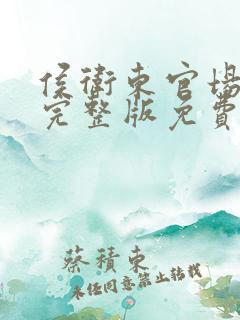 侯衛東官場
完整版免費
蔡積東
未经同意禁止转载